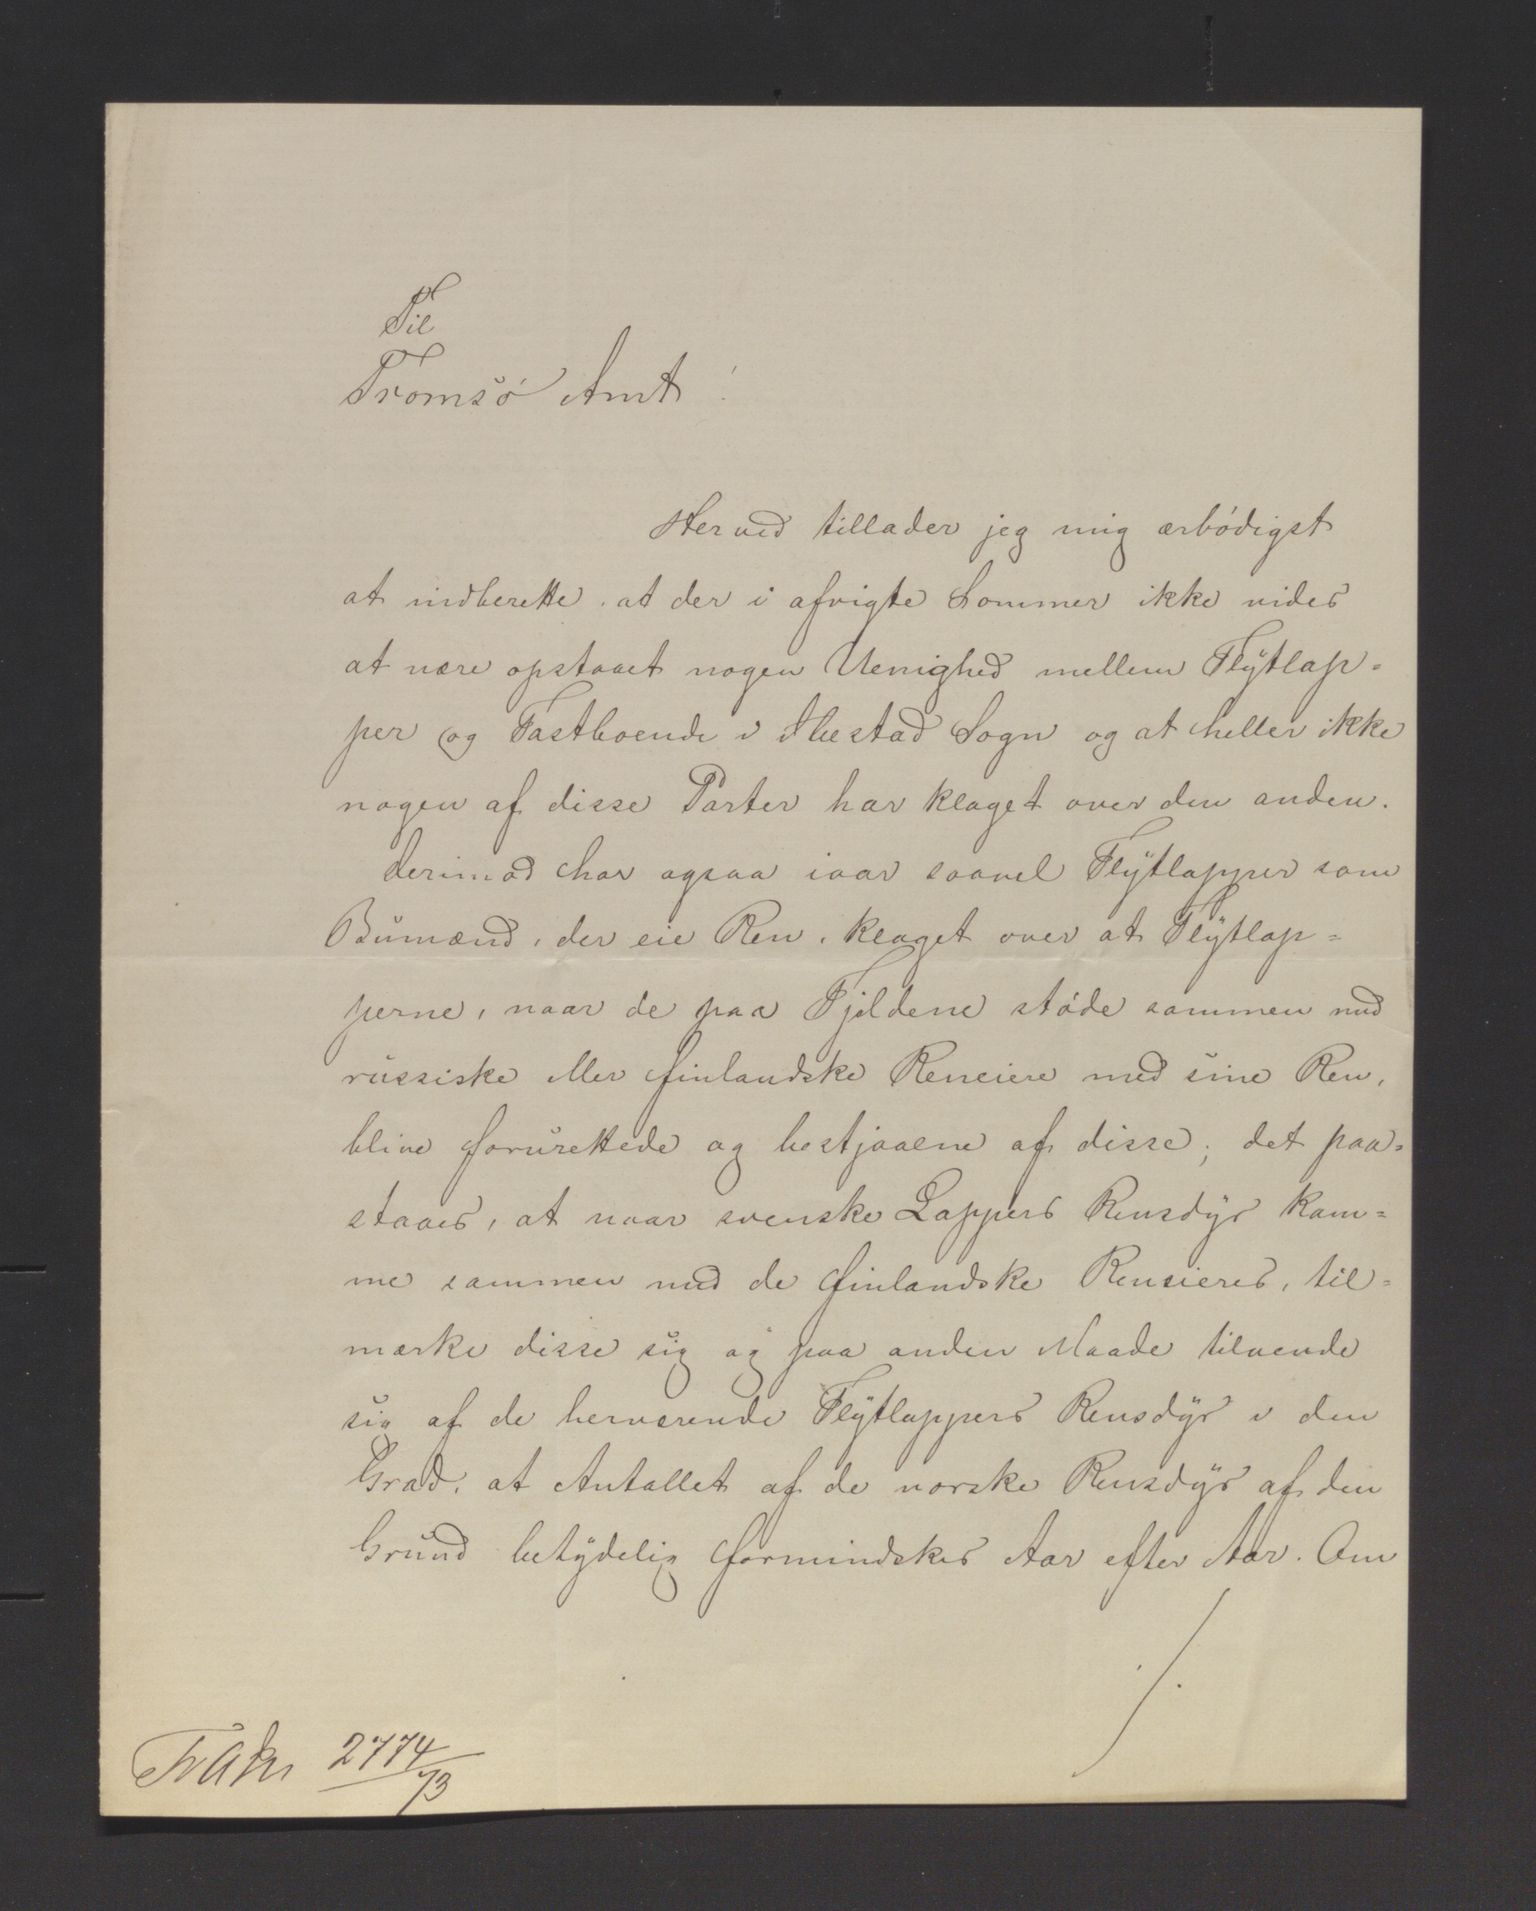 Til
Tromsö Amt!
Herved tillader jeg mig ærbödigst
at indberette, at der i afvigte Sommer ikke vides
at være opstaaet nogen Uenighed mellem Flytlap=
per og Fastboende i Ibestad Sogn og at heller ikke
nogen af disse Parter har klaget over den anden.
Derimod har ogsaa iaar saavel Flytlapper som
Bumænd, der eie Ren, klaget over at Flytlap=
perne, naar de paa Fjeldene stöde sammen med
russiske eller finlandske Reneiere med sine Ren,
blive forurettede og bestjaalne af disse; det paa=
staaes, at naar svenske Lappers Rensdyr kom=
me sammen med de finlandske Reneieres, til=
mærke disse sig og paa anden Maade tilvende
sig af de herværende Flytlappers Rensdyr i den
Grad, at Antallet af de norske Rensdyr af den
Grund betydelig formindskes Aar efter Aar. Om
./.
2774/73